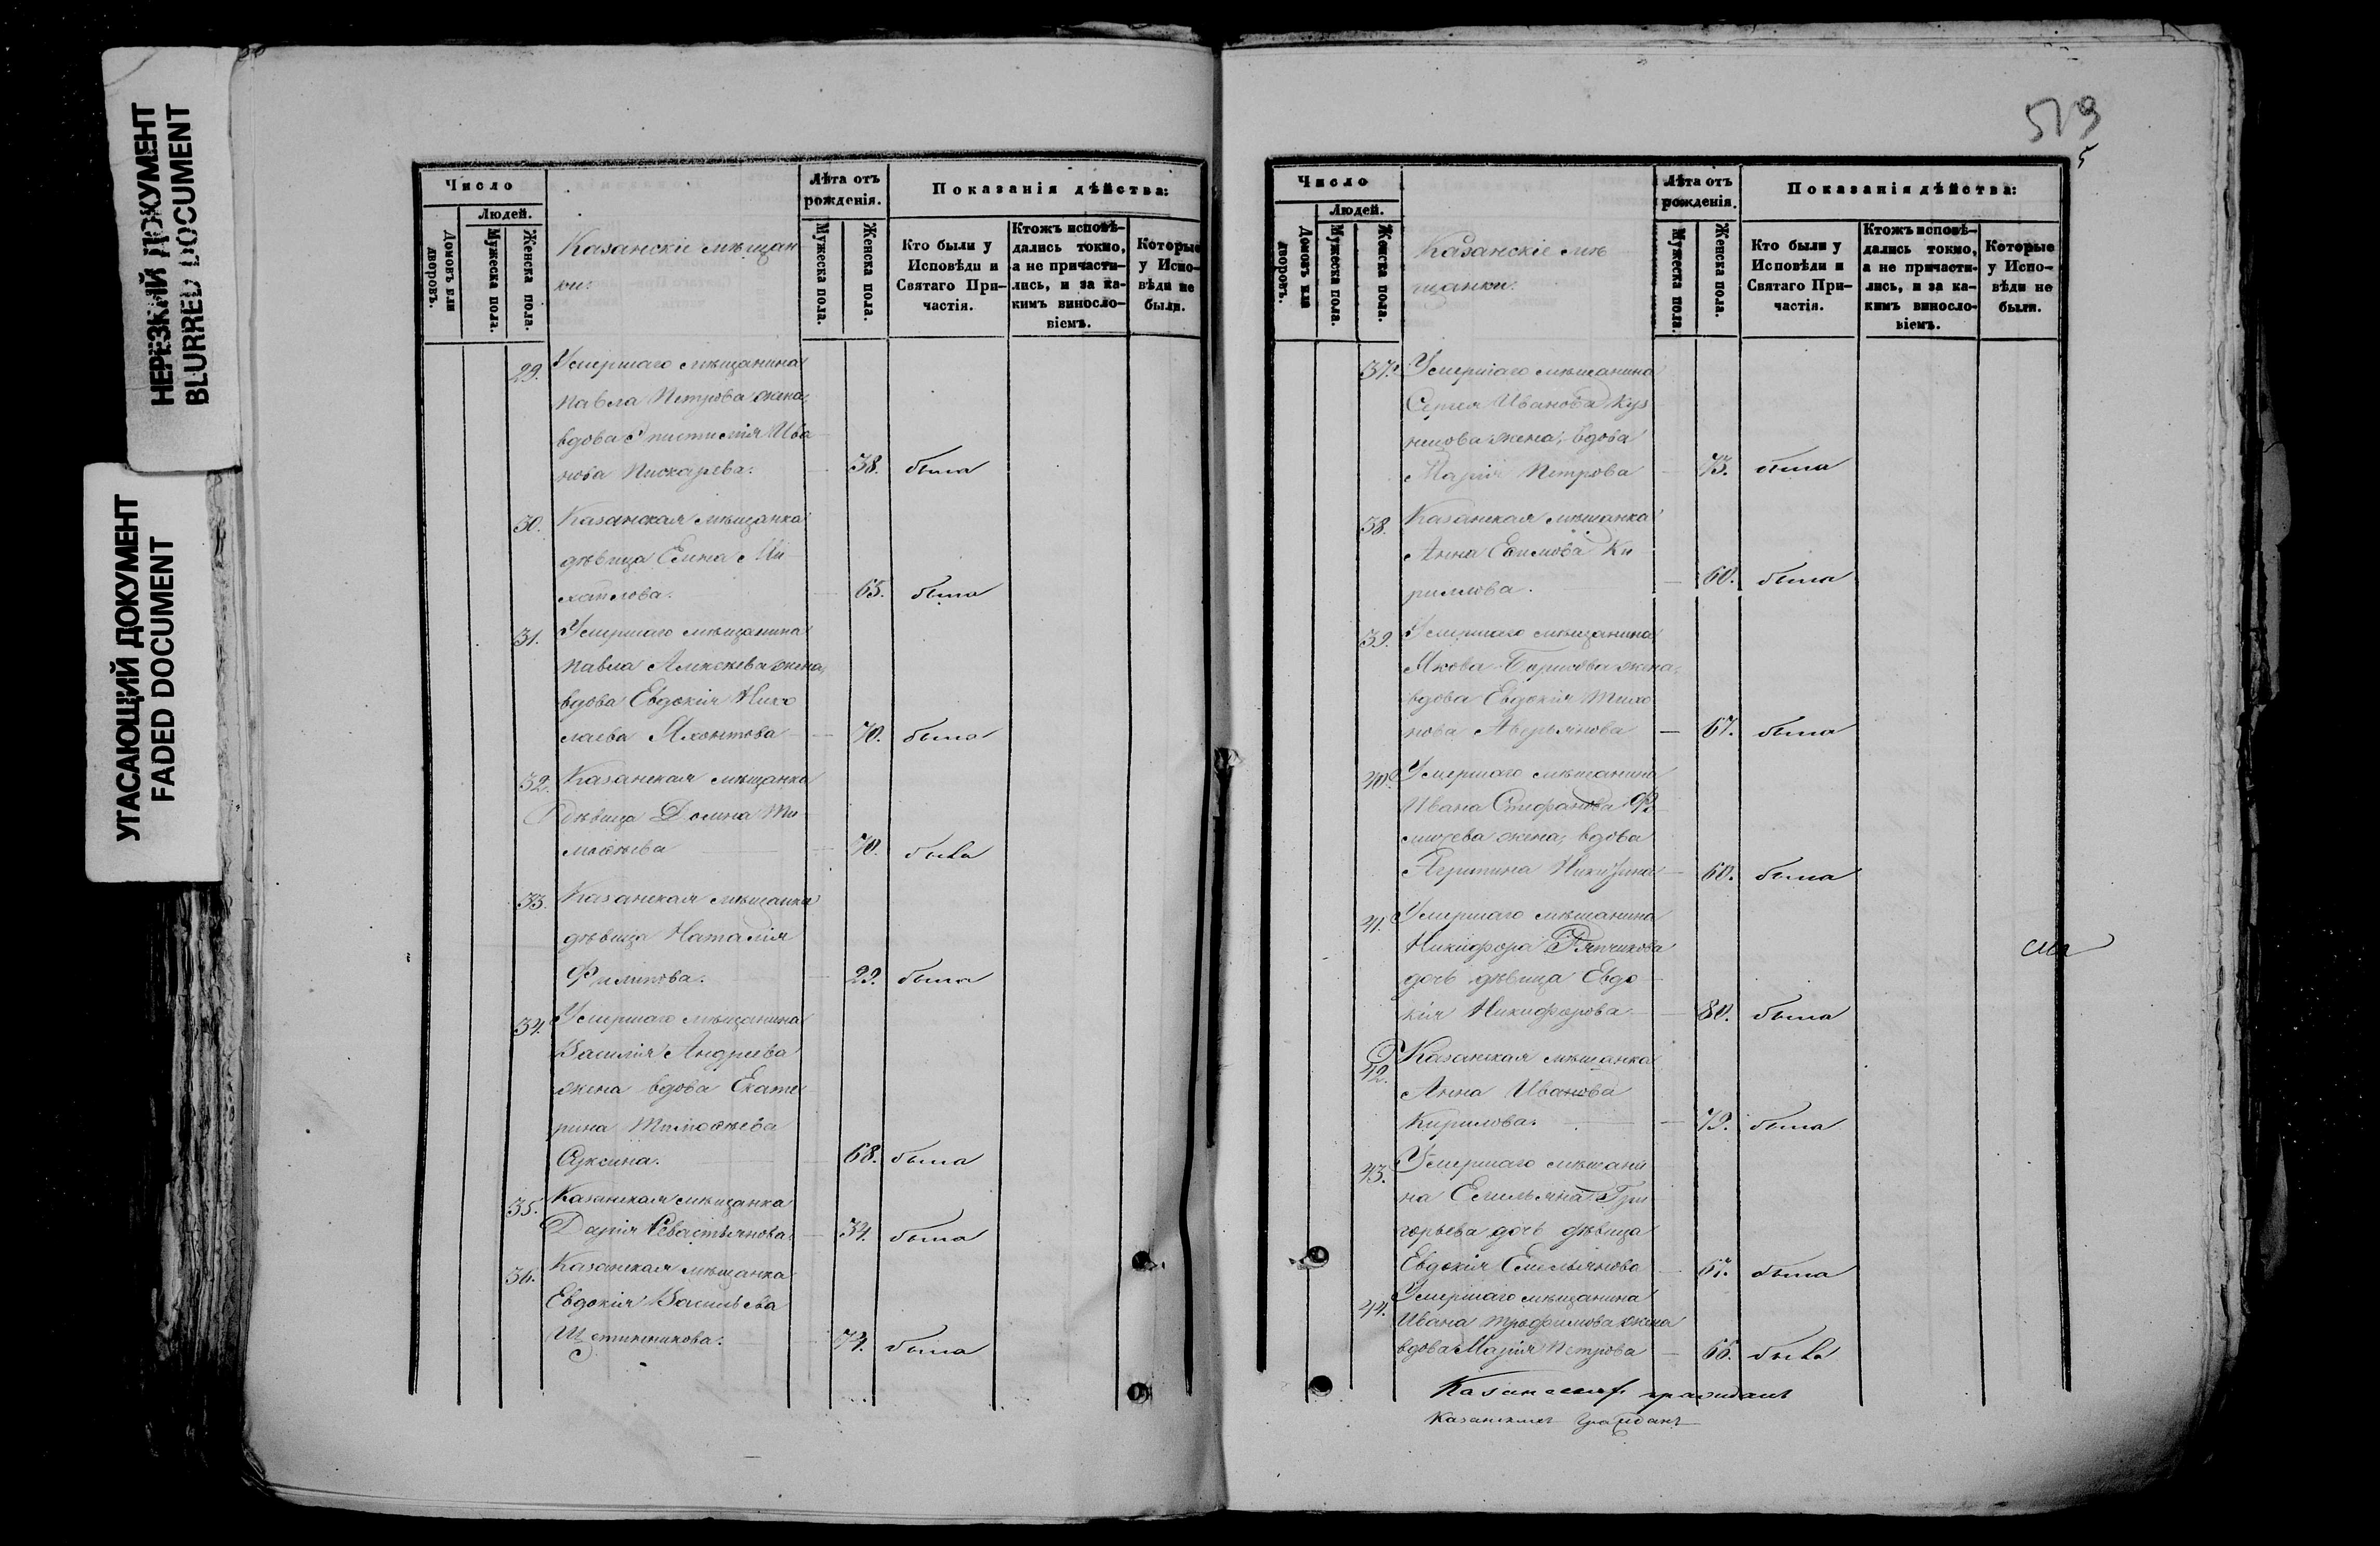 НЕРЕЗКИЙ ДОКУМЕНТ
BLURRED DOCUMENT
УГАСАЮЩИЙ ДОКУМЕНТ
FADED DOCUMENT
Число
Людей.
Домовъ или дворовъ.
Мужеска пола.
Женска пола.
Казанскіе мѣщан-
ки:
Лѣта отъ рожденія.
Мужеска пола.
Женска пола.
Показанія дѣйства:
Кто были у Исповѣди и Святаго При-частія.
Ктожъ исповѣ-дались токмо, а не причасти-лись, и за ка-кимъ винослo-віемъ.
Которые у Испо-вѣди не были.
29. Умершаго мѣщанина
Павла Петрова жена,
вдова Епистимія Ива
нова Пискарева. 38. была
30. Казанская мѣщанка
дѣвица Елена Ми-
хайлова. 65. была
31. Умершаго мѣщанина
Павла Алексѣева жена,
вдова Евдокія Нико
лаева Яхонтова 70. была
32. Казанская мѣщанка
дѣвица Домна Ти
моѳѣева 70. была
33. Казанская мѣщанка
дѣвица Наталія
Филипова. 29. была
34. Умершаго мѣщанина
Василія Андреева
жена вдова Екате
рина Тимоѳѣева
68. была
35. Казанская мѣщанка
Дарія Севастьянова 34. была
36. Казанская мѣщанка
Евдокія Васильева
Щетинникова. 74. была
519
5
Число
Людей.
Домовъ или дворовъ.
Мужеска пола.
Женска пола.
Казанскіе мѣ
щанки.
Лѣта отъ рожденія.
Мужеска пола.
Женска пола.
Показанія дѣйства:
Кто были у Исповѣди и Святаго При-частія.
Ктожъ исповѣ-дались токмо, а не причасти-лись, и за ка-кимъ винослo-віемъ.
Которые у Испо-вѣди не были.
37. Умершаго мѣщанина
Сергея Иванова Куз
нецова жена, вдова
Марія Петрова 73. была
38. Казанская мѣщанка
Анна Ефимова Ки
рилова. 60. была
39. Умершаго мѣщанина
Якова Борисова жена,
вдова Евдокія Тихо
нова Аверьянова 67. была
40. Умершаго мѣщанина
Ивана Стефанова
жена, вдова
Агрипина Никитина 60. была
41. Умершаго мѣщанина
Никифора Рѣпчикова
дочь дѣвица Евдо
кія Никифорова 80. была
42. Казанская мѣщанка
Анна Иванова
Кирилова. 79. была
43. Умершаго мѣщани
на Емельяна Гри
горьева дочь дѣвица
Евдокія Емельянова 67. была
44. Умершаго мѣщанина
Ивана Трофимова жена
вдова Марія Петрова 66. была